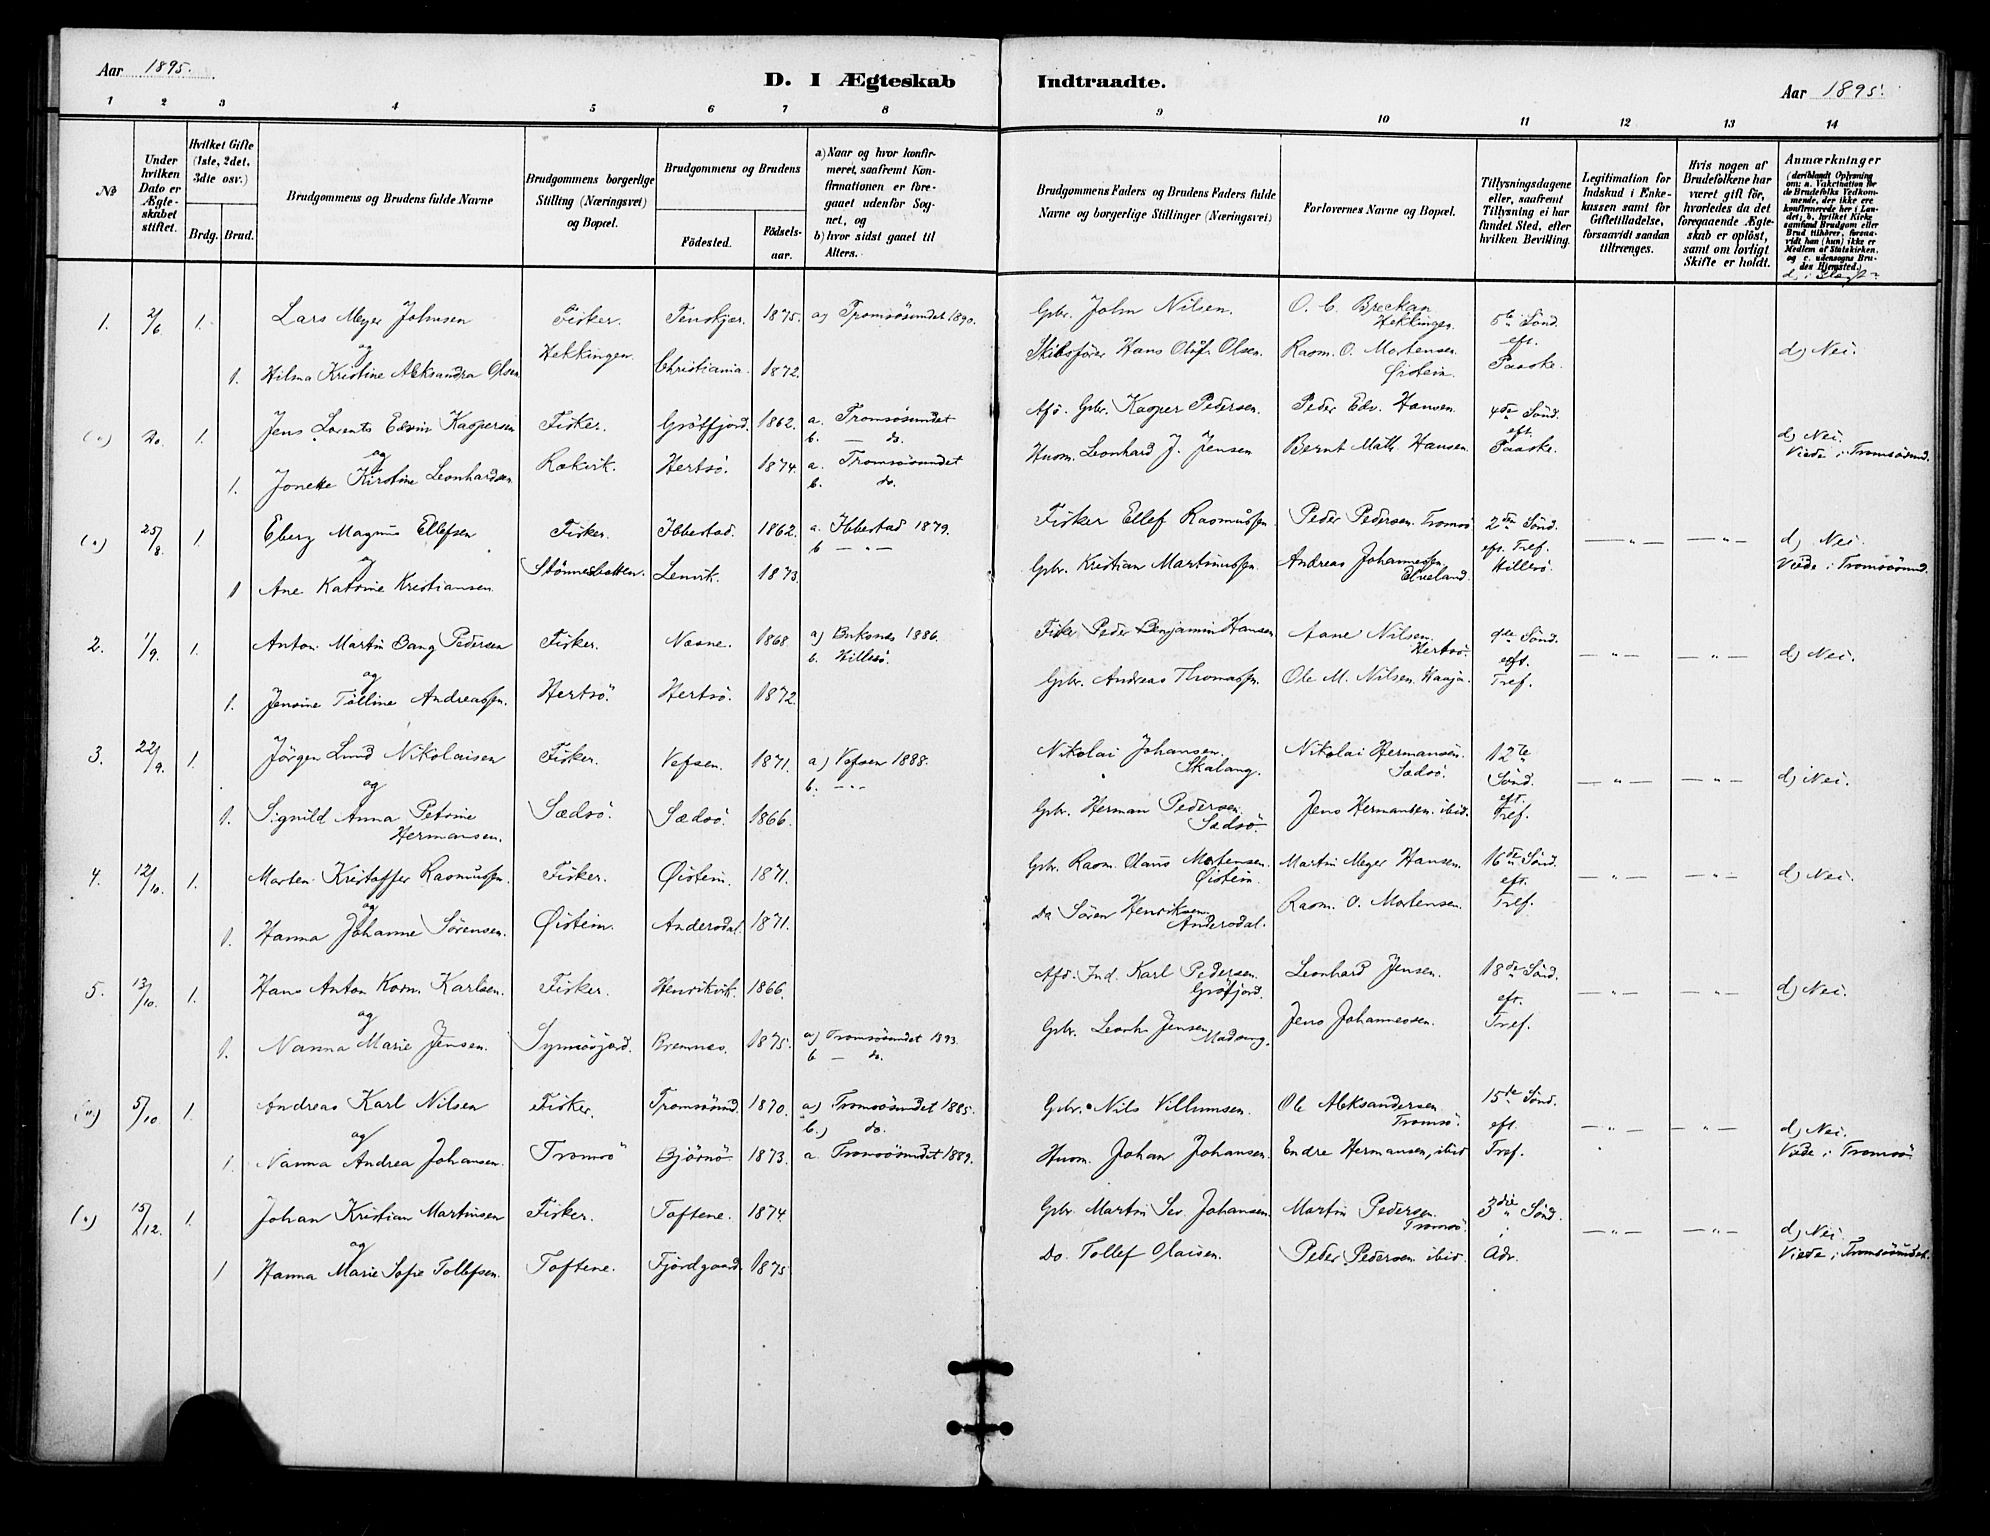 Aar 1895.
D. I Ægteskab Indtraadte.
Aar 1895.
1 2 3 4 5 6 7 8 9 10 11 12 13 14
No
Under hvilken Dato er Ægteskabet stiftet.
Hvilket Gifte (1ste, 2det, 3die osv.)
Brdg. Brud.
Brudgommens og Brudens fulde Navne
Brudgommens borgerlige Stilling (Næringsvei) og Bopæl.
Brudgommens og Brudens
Födested.
Födsels-aar.
a) Naar og hvor konfirmeret, saafremt Konfirmationen er foregaaet udenfor Sognet, og
b) hvor sidst gaaet til Alters.
Brudgommens Faders og Brudens Faders fulde Navne og borgerlige Stillinger (Næringsvei)
Forlovernes Navne og Bopæl.
Tillysningsdagene eller, saafremt Tillysning ei har fundet Sted, efter hvilken Bevilling.
Legitimation for Indskud i Enkekassen samt for Giftetilladelse, forsaavidt saadan tiltrænges.
Hvis nogen af Brudefolkene har været gift för, hvorledes da det foregaaende Ægteskab er oplöst, samt om lovligt Skifte er holdt.
Anmærkninger (deriblandt Oplysning om: a. Vakcination for de Brudefolks Vedkommende, der ikke ere konfirmerede her i Landet; b. hvilket Kirkesamfund Brudgom eller Brud tilhörer, forsaavidt han (hun) ikke er Medlem af Statskirken, og c. udensogns Brudes Hjemsted.)
d) i Slægt?
1. 2/6 1. Lars Meyer Johnsen Fisker. Tenskjær. 1875. a) Tromsösundet 1890. Gbr. John Nilsen. O. C. Breckan Hekkingen. 5te Sönd. eft. Paaske. d) Nei.
og
1. Hilma Kristine Aleksandra Olsen Hekkingen. Christiania. 1872. Skibsförer Hans Oluf Olsen. Rasm. O. Mortensen Öistein.
(") Do. 1. Jens Lorents Edvin Kaspersen Fisker. Gröffjord. 1862. a. Tromsösundet b. — do. Afd. Gbr. Kasper Pedersen. Peder Edv. Hansen. 4de Sönd. eft. Paaske. d) Nei.
og
1. Jonette Kirstine Leonhardsen Rækvik. Hertsö. 1874. a. Tromsösundet b. do. Husm. Leonhard J. Jensen Bernt Math. Hansen. Viede i Tromsösund.
(") 25/8. 1. Eberg Magnus Ellefsen Fisker. Ibbestad. 1862. a. Ibbestad 1879. b — " — Fisker Ellef Rasmussen. Peder Pedersen. Tromsö 2den Sönd. eft. Tref. Hillesö. — " — — " — d) Nei.
og
1 Ane Katrine Kristiansen Stönnesbotten. Lenvik. 1873. Gbr. Kristian Martinussen. Andreas Johannessen Elveland. Viede i Tromsösund.
2. 1/9. 1. Anton Martin Bang Pedersen Fisker. Næsne. 1868 a) Buksnes 1886. b. Hillesö. Fisker Peder Benjamin Hansen Aane Nilsen. Hertsö. 9de Sönd. eft. Tref. — " — — " — d) Nei.
og
1. Jensine Tolline Andreassen. Hertsö. Hertsö. 1872. Gbr. Andreas Thomassen. Ole M. Nilsen. Haaja.
3. 22/9. 1. Jörgen Lund Nikolaisen Fisker. Vefsen. 1871. a) Vefsen 1888. b. — " — Nikolai Johansen. Skalang. Nikolai Hermansen. Sædsö. 12te Sönd. eft. Tref. — " — — " — d) Nei.
og
1. Signild Anna Petrine Hermansen. Sædsö. Sædsö. 1866. Gbr. Herman Pedersen. Sædsö. Jens Hermansen ibid.
4. 12/10. 1. Morten Kristoffer Rasmussen. Fisker. Öistein. 1871. Gbr. Rasm. Olaus Mortensen. Öistein. Martin Meyer Hansen. 16de Sönd. eft. Tref. — " — — " — d) Nei.
og
1. Hanna Johanne Sörensen. Öistein. Andersdal. 1871. Do Sören Henriksen. Andersdal. Rasm. O. Mortensen.
5. 13/10. 1. Hans Anton Korn. Karlsen. Fisker. Henrikvik. 1866. Afd. Ind. Karl Pedersen. Gröfjord. Leonhard Jensen. 18de Sönd. eft. Tref. — " — — " — d) Nei.
og
1. Nanna Marie Jensen. Bremnes. 1875. a) Tromsösundet 1893. b — do. Gbr. Leonh. Jensen Jens Johannessen.
(") 5/10 1. Andreas Karl Nilsen Fisker. Tromsösund. 1870. a) Tromsösundet 1885. b.) do. Gbr. Nils Villumsen. Ole Aleksandersen. Tromsö. 15de Sönd. eft. Tref. — " — — " — d) Nei.
og
1. Nanna Andrea Johansen. Tromsö Björnö 1873. a. Tromsösundet 1889. Husm. Johan Johansen. Endre Hermansen, ibid Viede i Tromsö
(") 15/12. 1. Johan Kristian Martinsen Fisker. Toftene. 1874. Gbr. Martin Sev. Johansen. Martin Pedersen. Tromsö. 3die Sönd. i Adv. — " — — " — d) Nei.
og
1 Hanna Marie Sofie Tollefsen. Toftene. Fjordgaard 1875 Do. Tollef Olaisen. Peder Pedersen ibid. Viede i Tromsösundet.